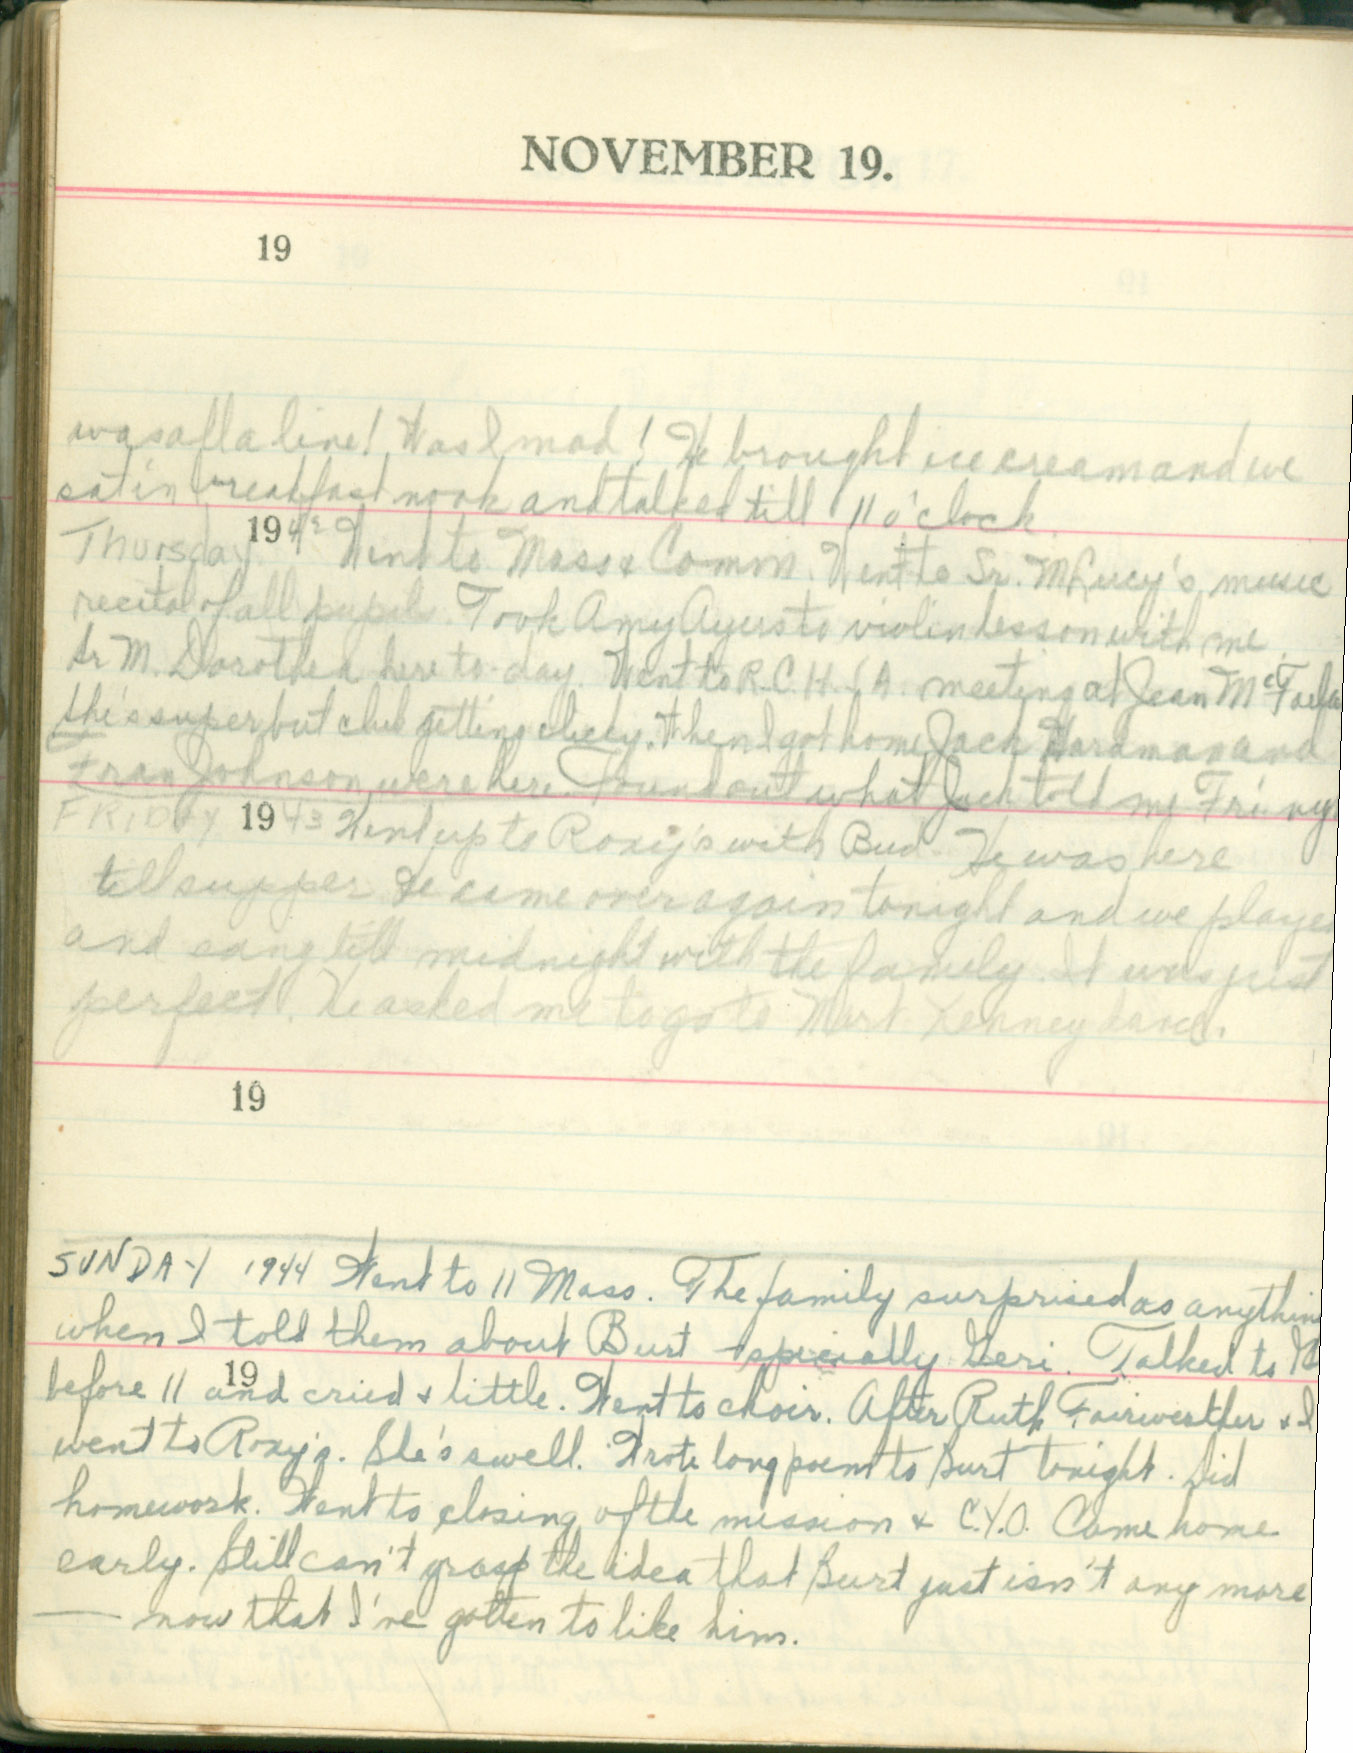 NOVEMBER 19.
19
was all a line! Was I mad! He brought ice cream and we
sat in breakfast nook and talked till 11 o'clock.
Thursday 1942 Went to Mass & Comm. Went to Sr. M Lucy's music
recital of all pupils. Took Amy Ayers to violin lesson with me.
Sr M. Dorothea here to-day. Went to R.C.H.S.A. meeting at Jean
She's super but club getting clicey. When I got home Jack and
Fran Johnson were here. Found out what Jack told my Fri.
FRIDAY 1943 Went up to Roxy's with Bud. He was here
till supper. He came over again tonight and we played
and sang till midnight with the family. It was just
perfect. He asked me to go to Mart Kenney dance.
19
SUNDAY 1944 Went to 11 Mass. The family surprised as anything
when I told them about Burt - specially Geri. Talked to
19
before 11 and cried a little. Went to choir. After Ruth Fairweather & I
went to Roxy's. She's swell. Wrote long poem to Burt tonight. Did
homework. Went to closing of the mission & C.Y.O. Came home
early. Still can't grasp the idea that Burt just isn't any more
— now that I've gotten to like him.